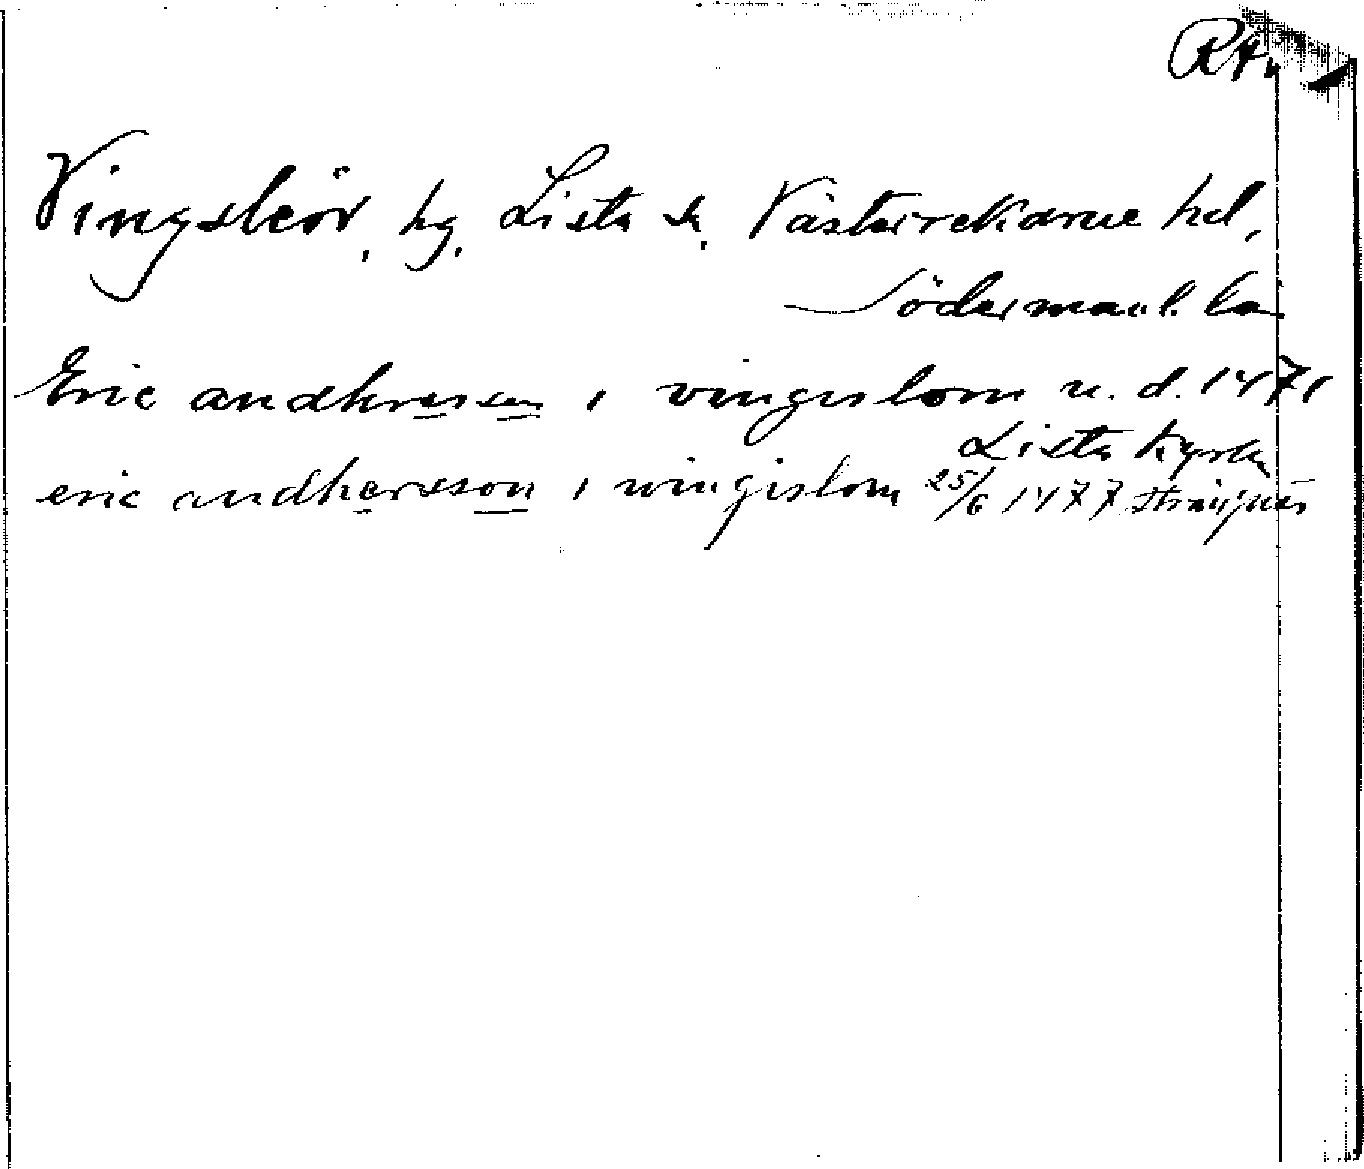 RA.
Vingsleör, hg. Lista sn. Västerrekarne hd,
Södermanl. län
Eric andhressen i vingislom u. d. 1471
Lista kyrka
eric andhersson i wingislom 25/6 1477 Strängnäs